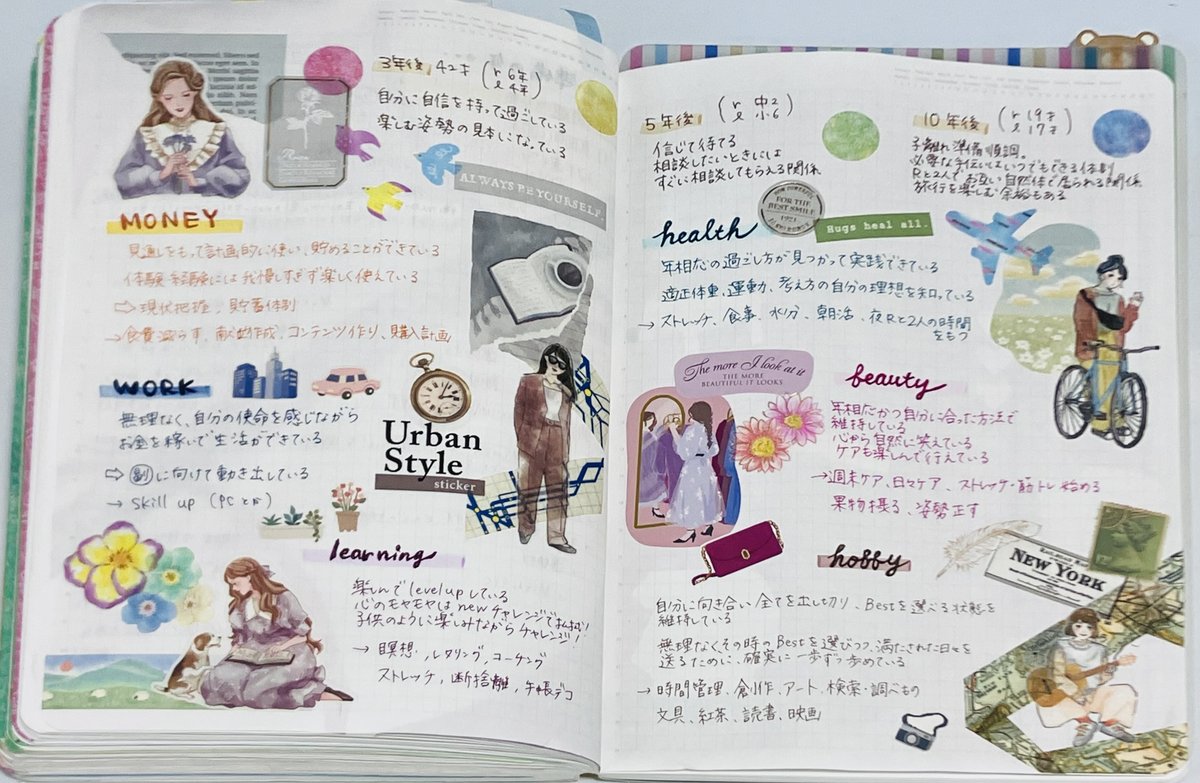 3年後 42才 (r 6年
l 4年)
自分に自信を持って過ごしている
楽しむ姿勢の見本になっている
ALWAYS BE YOURSELF.
MONEY
見通しをもって計画的に使い、貯めることができている
体験・経験には我慢しすぎず楽しく使えている
⇨ 現状把握、貯蓄体制
→食費減らす、献立作成、コンテンツ作り、購入計画
WORK
無理なく、自分の使命を感じながら
お金を稼いで生活ができている
⇨ 副に向けて動き出している
→ skill up (PCとか)
Urban
Style
sticker
learning
楽しんで level upしている
心のモヤモヤは newチャレンジで
子供のように楽しみながらチャレンジ!
→ 瞑想、レタリング、コーチング
ストレッチ、断捨離、手帳デコ
5年後 (r 中2
l 小6)
信じて待てる
相談したいときには
すぐに相談してもらえる関係
10年後 (r 19才
l 17才)
子離れ準備順調。
必要な手伝いはいつでもできる体制
Rと2人で お互い自然体で居られる関係
旅行を楽しむ 余裕もある
health
FOR THE
BEST SMILE
1921
Hugs heal all.
年相応の過ごし方が見つかって実践できている
適正体重、運動、考え方の自分の理想を知っている
→ ストレッチ、食事、水分、朝活、夜Rと2人の時間
をもつ
The more I look at it
THE MORE
BEAUTIFUL IT LOOKS
beauty
年相応かつ自分に沿った方法で
維持している
心から自然に笑えている
ケアも楽しんで行えている
→週末ケア、日々ケア、ストレッチ・筋トレ始める
果物摂る、姿勢正す
hobby
NEW YORK
自分に向き合い 全てを出し切り、Bestを選べる状態を
維持している
無理なくその時のBestを選びつつ、満たされた日々を
送るために、確実に一歩ずつ歩めている
→ 時間管理、創作、アート、検索・調べもの
文具、紅茶、読書、映画